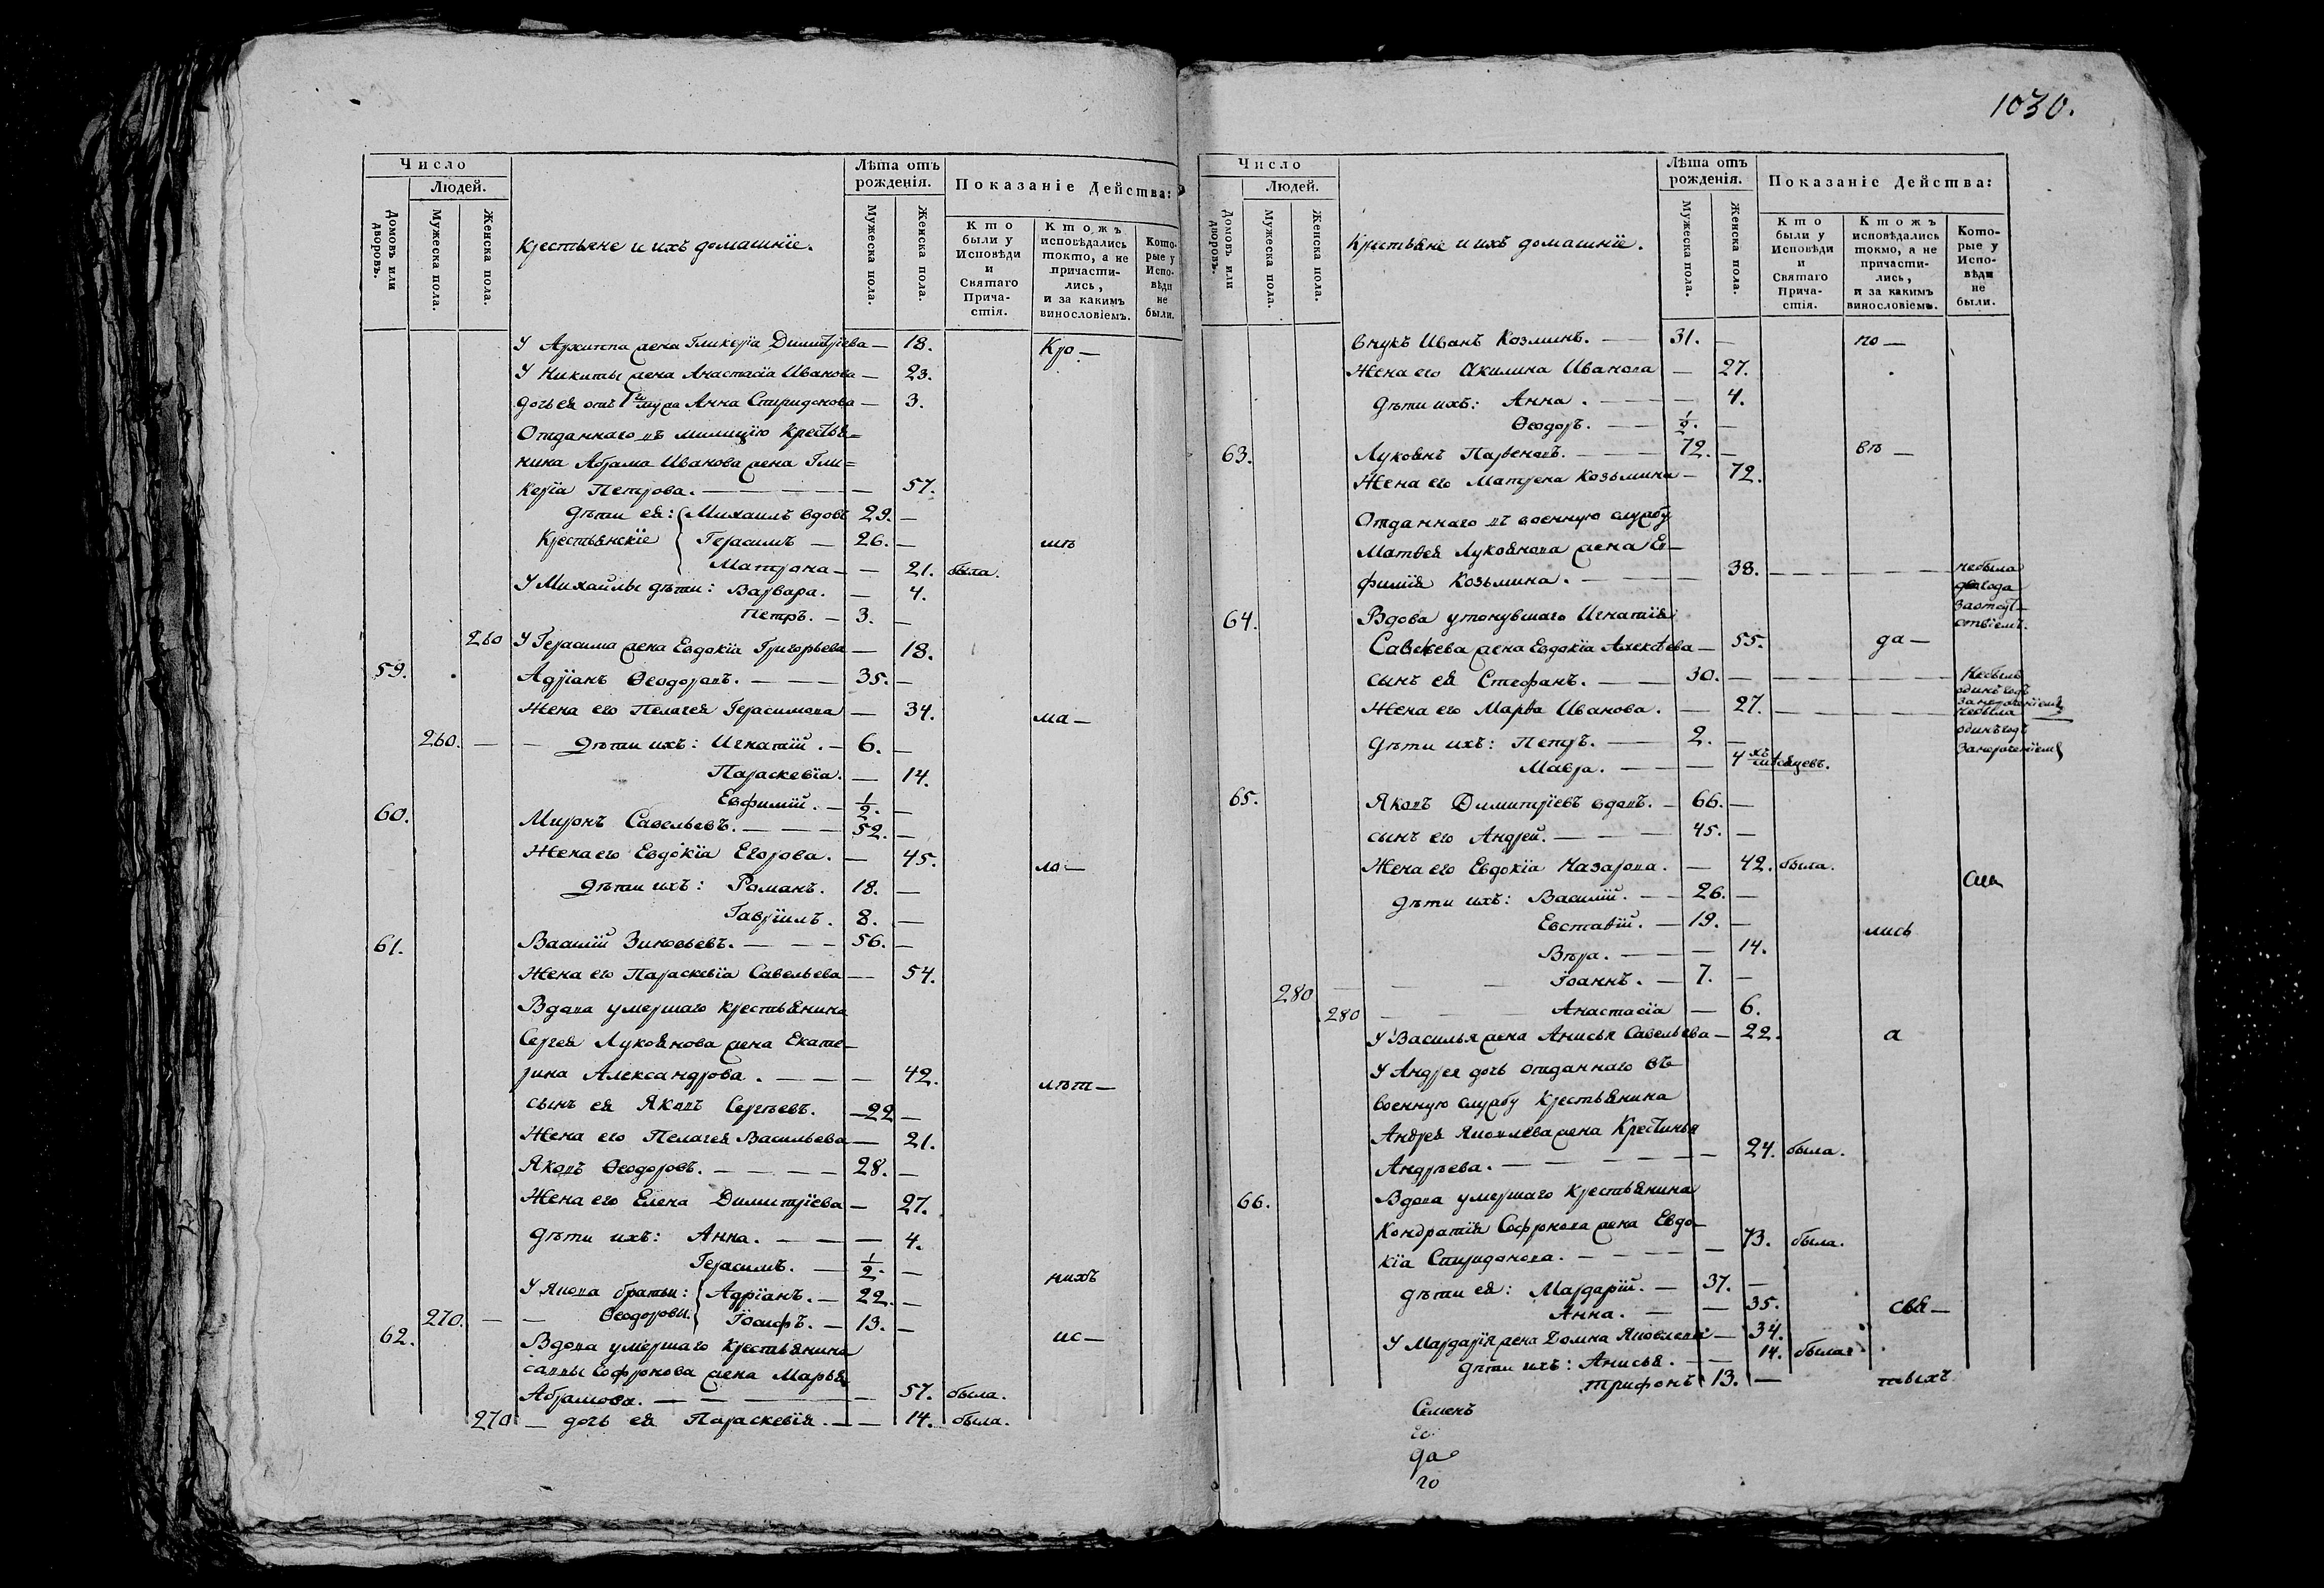 1030.
Число
Людей.
Домовъ или дворовъ.
Мужеска пола.
Женска пола.
Крестьяне и ихъ домашніе.
Лѣта отъ рожденія.
Мужеска пола.
Женска пола.
Показаніе Дѣйства:
Кто были у Исповѣди и Святаго Причастія.
Ктожъ исповѣдались токмо, а не причастились, и за какимъ винословіемъ.
Которые у Исповѣди не были.
У Архиппа жена Гликерія Димитріева — 18. Кро —
У Никиты жена Анастасія Иванова — 23.
дочь ея отъ 1го мужа Анна Спиридонова — 3.
Отданнаго въ милицію крестья=
нина Абрама Иванова жена Гли=
керія Петрова. — 57.
Дѣти ея: Михаилъ вдовъ 29. —
Крестьянскіе Герасимъ — 26. — мѣ
Матрона — — 21. была.
У Михайлы дѣти: Варвара. — 4.
Петръ. — 3. —
260 У Герасима жена Евдокія Григорьева — 18.
59. Адріанъ Ѳеодоровъ. — 35. —
Жена его Пелагея Герасимова — 34. ма —
260. — — Дѣти ихъ: Игнатій. — 6. —
Параскевія. — 14.
Евфимій. — 1/2. —
60. Миронъ Савельевъ. — 52. —
Жена его Евдокія Егорова. — 45. ло —
Дѣти ихъ: Романъ. 18. —
Гавріилъ. 8. —
61. Василій Зиновьевъ. — 56. —
Жена его Параскевія Савельева — 54.
Вдова умершаго крестьянина
Сергея Лукоянова жена Екате—
рина Александрова. — 42. лѣт —
сынъ ея Яковъ Сергѣевъ. — 22 —
Жена его Пелагея Васильева — 21.
Яковъ Ѳеодоровъ. — 28. —
Жена его Елена Димитріева — 27.
Дѣти ихъ: Анна. — 4.
Герасимъ. — 1/2. —
нихъ
У Якова братьи: Адріанъ. — 22. —
270. — — Ѳеодоровы. Іосифъ. — 13. —
62. Вдова умершаго крестьянина ис —
саввы Софронова жена Марья
Абрамова. — 57. была.
270 — дочь ея Параскевія. — — 14. была.
Число
Людей.
Домовъ или дворовъ.
Мужеска пола.
Женска пола.
Крестьяне и ихъ домашніе.
Лѣта отъ рожденія.
Мужеска пола.
Женска пола.
Показаніе Дѣйства:
Кто были у Исповѣди и Святаго Причастія.
Ктожъ исповѣдались токмо, а не причастились, и за какимъ винословіемъ.
Которые у Исповѣди не были.
Внукъ Иванъ Козминъ. — 31. — по —
Жена его Акилина Иванова — 27.
Дѣти ихъ: Анна. — 4.
Ѳеодоръ. — 1/2. —
63. Лукоянъ Парѳеновъ. — 72. — вѣ —
Жена его Матрена Козьмина — 72.
Отданнаго въ военную службу
Матвея Лукоянова жена Ев—
фимія Козьмина. — 38. — небыла
два года
за отсут—
ствіемъ.
64. Вдова утонувшаго Игнатія
Савельева жена Евдокія Алексѣева — 55. да —
сынъ ея Стефанъ. — 30. — небылъ
одинъ годъ
Жена его Марѳа Иванова. — 27. — небыла
одинъ годъ
Дѣти ихъ: Петръ. — 2. —
Мавра. — — 4хъ мѣсяцевъ.
65. Яковъ Димитріевъ вдовъ. — 66. —
сынъ его Андрей. — 45. —
Жена его Евдокія Назарова. — 42. была.
Дѣти ихъ: Василій. — 26. —
Евстаѳій. — 19. — лись
Вѣра. — — 14.
280 — Іоаннъ. — 7. —
280 — Анастасія — 6.
У Василья жена Анисья Савельева — 22. а
У Андрея дочь отданнаго въ
военную службу крестьянина
Андрея Яковлева жена Крестинья
Андрѣева. — 24. была.
66. Вдова умершаго крестьянина
Кондратія Софронова жена Евдо—
кія Спиридонова. — 73. была.
Дѣти ея: Мардарій. — 37. —
Анна. — — 35. свя —
У Мардарія жена Домна Яковлева — 34.
Дѣти ихъ: Анисья. — — 14. была
Трифонъ 13. — тыхъ
Семенъ
да
го